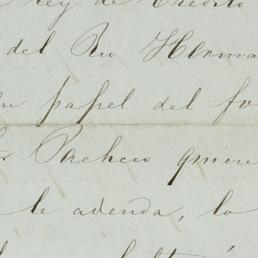 ley de Crédito
del Rio Herma
papel del fu
Pacheco quiere
le adenda, lo